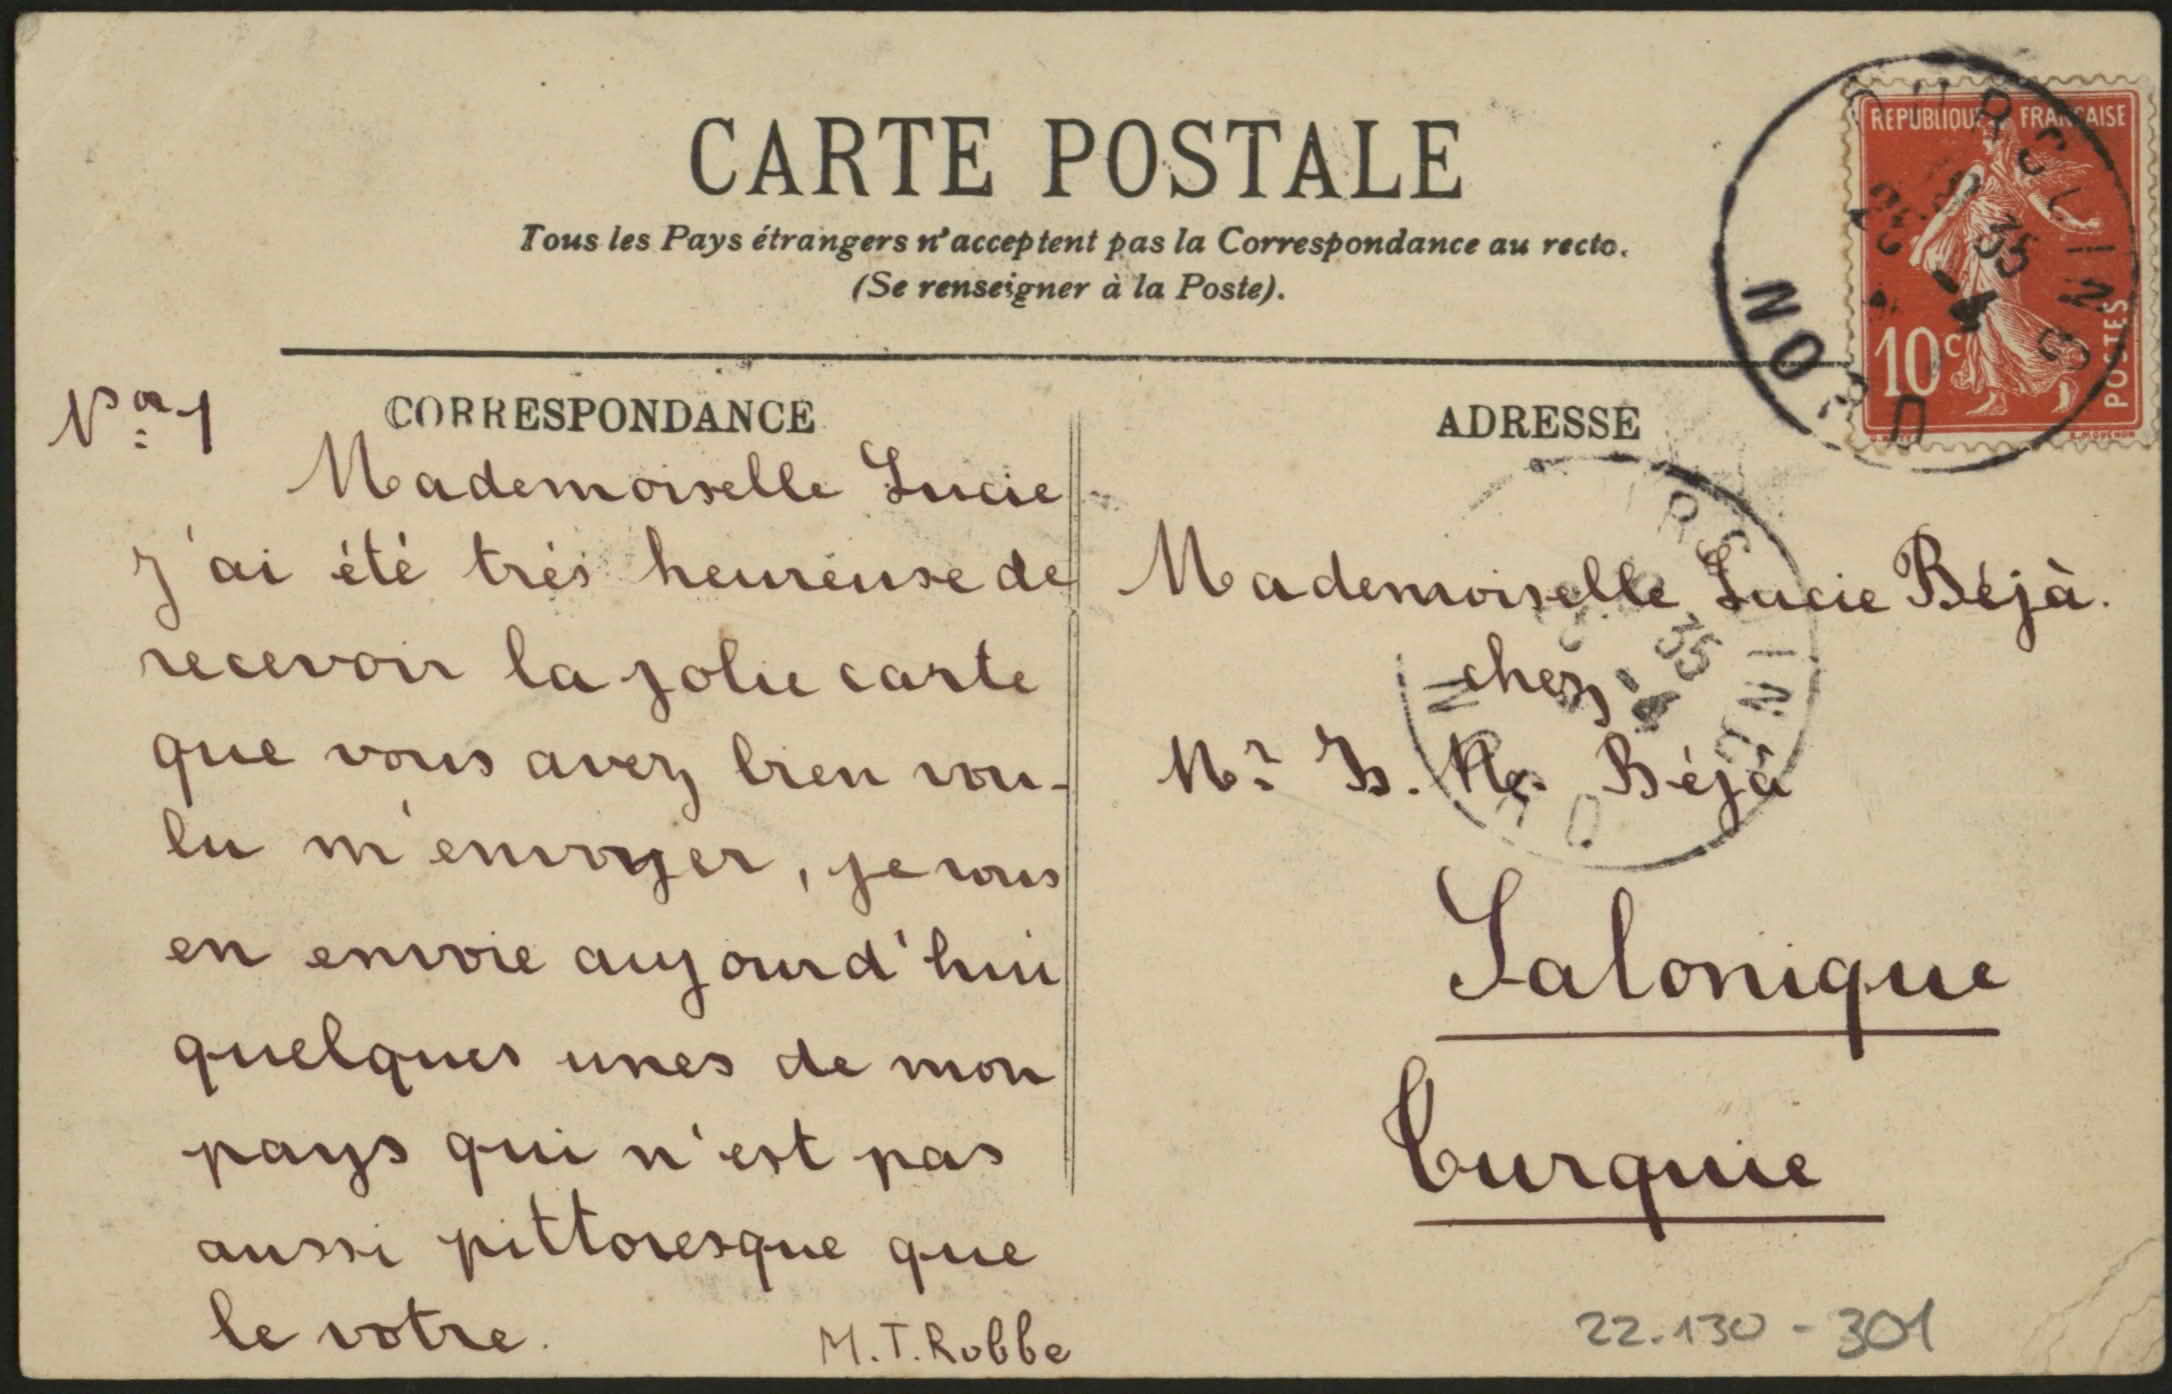 CARTE POSTALE
Tous les Pays étrangers n'acceptent pas la Correspondance au recto.
(Se renseigner à la Poste).
REPUBLIQUE FRANÇAISE
10c
POSTES
NORD
35
-4
CORRESPONDANCE
Mademoiselle Lucie
J'ai été très heureuse de
recevoir la jolie carte
que vous avez bien vou-
lu m'envoyer, je vous
en envoie aujourd'hui
quelques unes de mon
pays qui n'est pas
aussi pittoresque que
le votre.
M.T. Robbe
ADRESSE
Mademoiselle Lucie Béjà.
chez
Mr Is. Béjà
Salonique
Turquie
35
-4
NORD
22.130-301